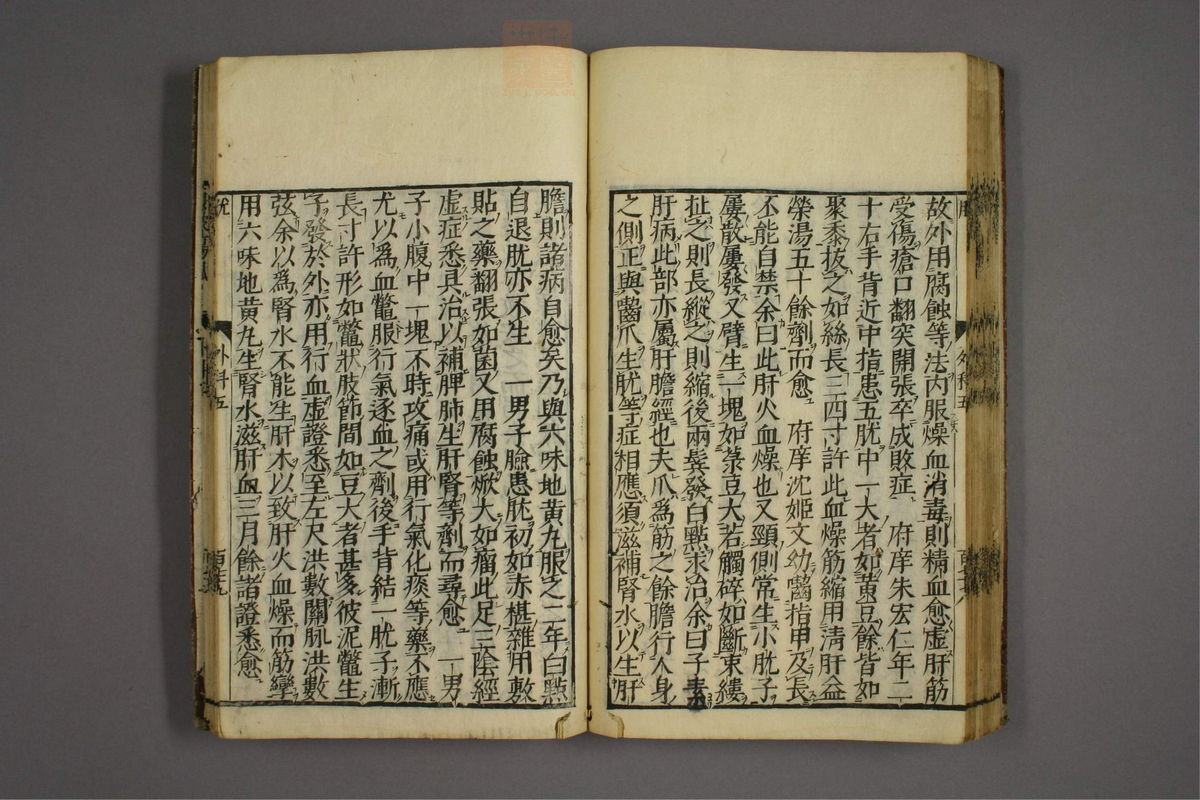 故外用腐蝕等法內服燥血消毒則精血愈虛肝筋
受傷瘡口翻突開張卒成敗症 府庠朱宏仁年二
十右手背近中指患五肬中一大者如黃豆餘皆如
聚黍拔之如絲長三四寸許此血燥筋縮用淸肝益
榮湯五十餘劑而愈 府庠沈姬文幼嚙指甲及長
不能自禁余曰此肝火血燥也又頸側常生小肬子
屢散屢發又臂生一塊如菉豆大若觸碎如斷束縷
扯之則長縱之則縮後兩鬢發白點求治余曰子素
肝病此部亦屬肝膽經也夫爪爲筋之餘膽行人身
之側正與嚙爪生肬等症相應須滋補腎水以生肝
膽則諸病自愈矣乃與六味地黃丸服之二年白點
自退肬亦不生 一男子臉患肬初如赤椹雜用敷
貼之藥翻張如菌又用腐蝕焮大如瘤此足三陰經
虛症悉具治以補脾肺生肝腎等劑而尋愈 一男
子小腹中一塊不時攻痛或用行氣化痰等藥不應
尤以爲血鱉服行氣逐血之劑後手背結一肬子漸
長寸許形如鱉狀肢節間如豆大者甚多彼泥鱉生
子發於外亦用行血虛證悉至左尺洪數關脉洪數
弦余以爲腎水不能生肝木以致肝火血燥而筋攣
用六味地黃丸生腎水滋肝血三月餘諸證悉愈
外科五